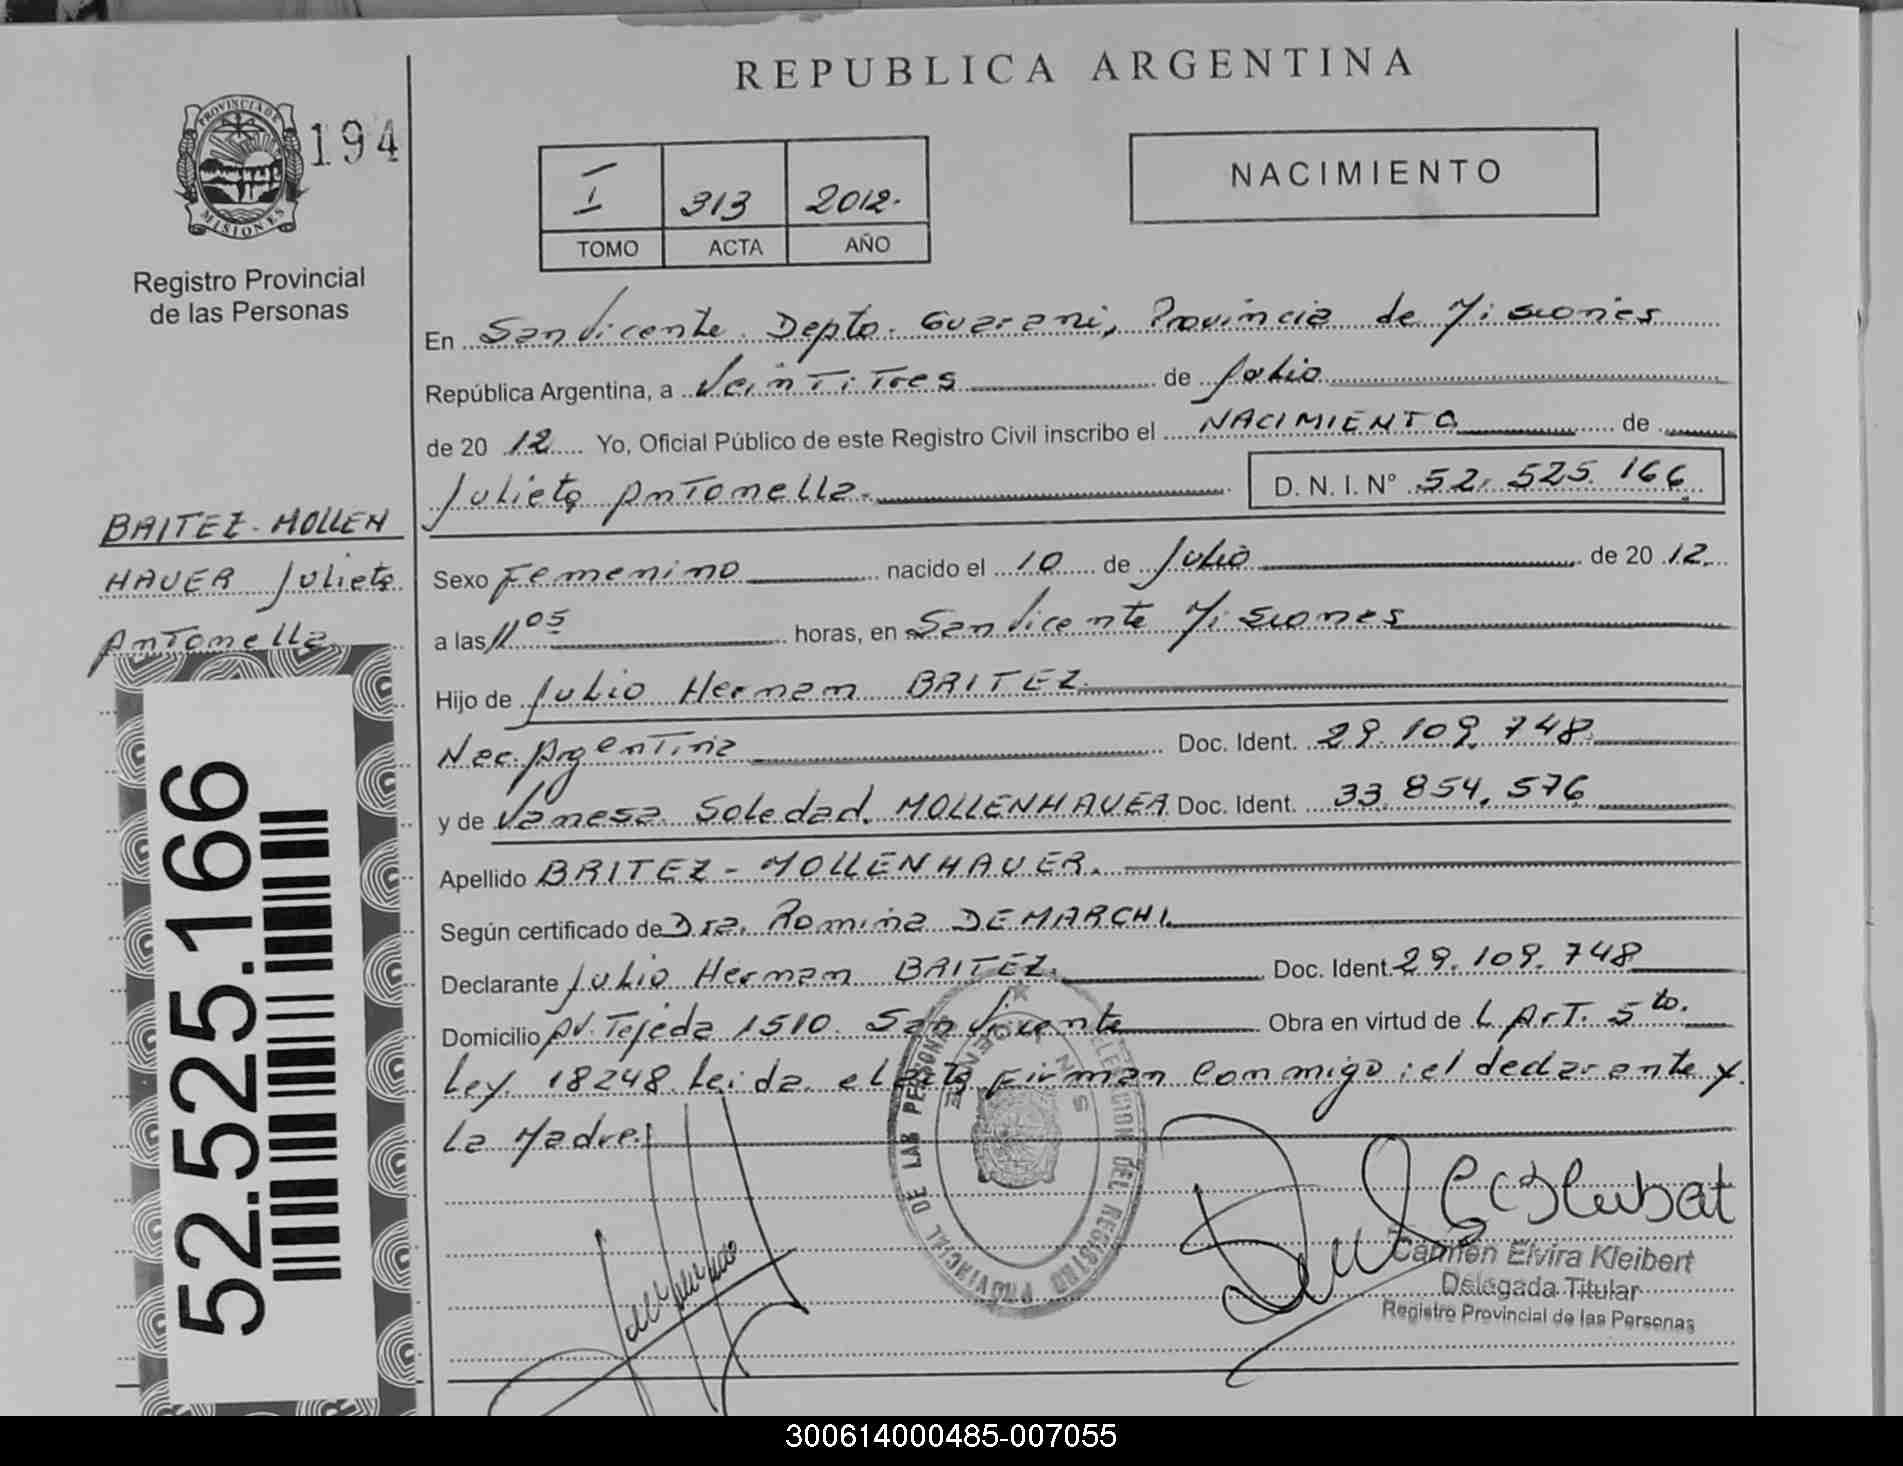 REPUBLICA ARGENTINA
PROVINCIA DE
MISIONES
194
Registro Provincial
de las Personas
I 313 2012.
TOMO ACTA AÑO
NACIMIENTO
En San Vicente Depto. Guarani, Provincia de Misiones
República Argentina, a Veintitres de Julio
de 20 12 Yo, Oficial Público de este Registro Civil inscribo el NACIMIENTO de
Julieta Antonella D. N. I. Nº 52. 525. 166
BRITEZ - MOLLEN
HAUER Julieta
Antonella
Sexo Femenino nacido el 10 de Julio de 20 12.
a las 11 05 horas, en San Vicente Misiones
Hijo de Julio Hernan BRITEZ
Nac. Argentina Doc. Ident. 29. 109. 748
y de Vanesa Soledad MOLLENHAUER Doc. Ident. 33. 854. 576
Apellido BRITEZ - MOLLENHAUER.
Según certificado de Dra. Romina DEMARCHI
Declarante Julio Hernan BRITEZ. Doc. Ident. 29. 109. 748
Domicilio Av. Tejeda 1510. San Vicente Obra en virtud de L Art. 5to.
Ley 18248. Leida el Acta Firman Conmigo: el declarante y
La Madre.
52.525.166
DELEGACION DEL REGISTRO PROVINCIAL DE LAS PERSONAS
SAN VICENTE
Carmen Elvira Kleibert
Delegada Titular
Registro Provincial de las Personas
300614000485-007055